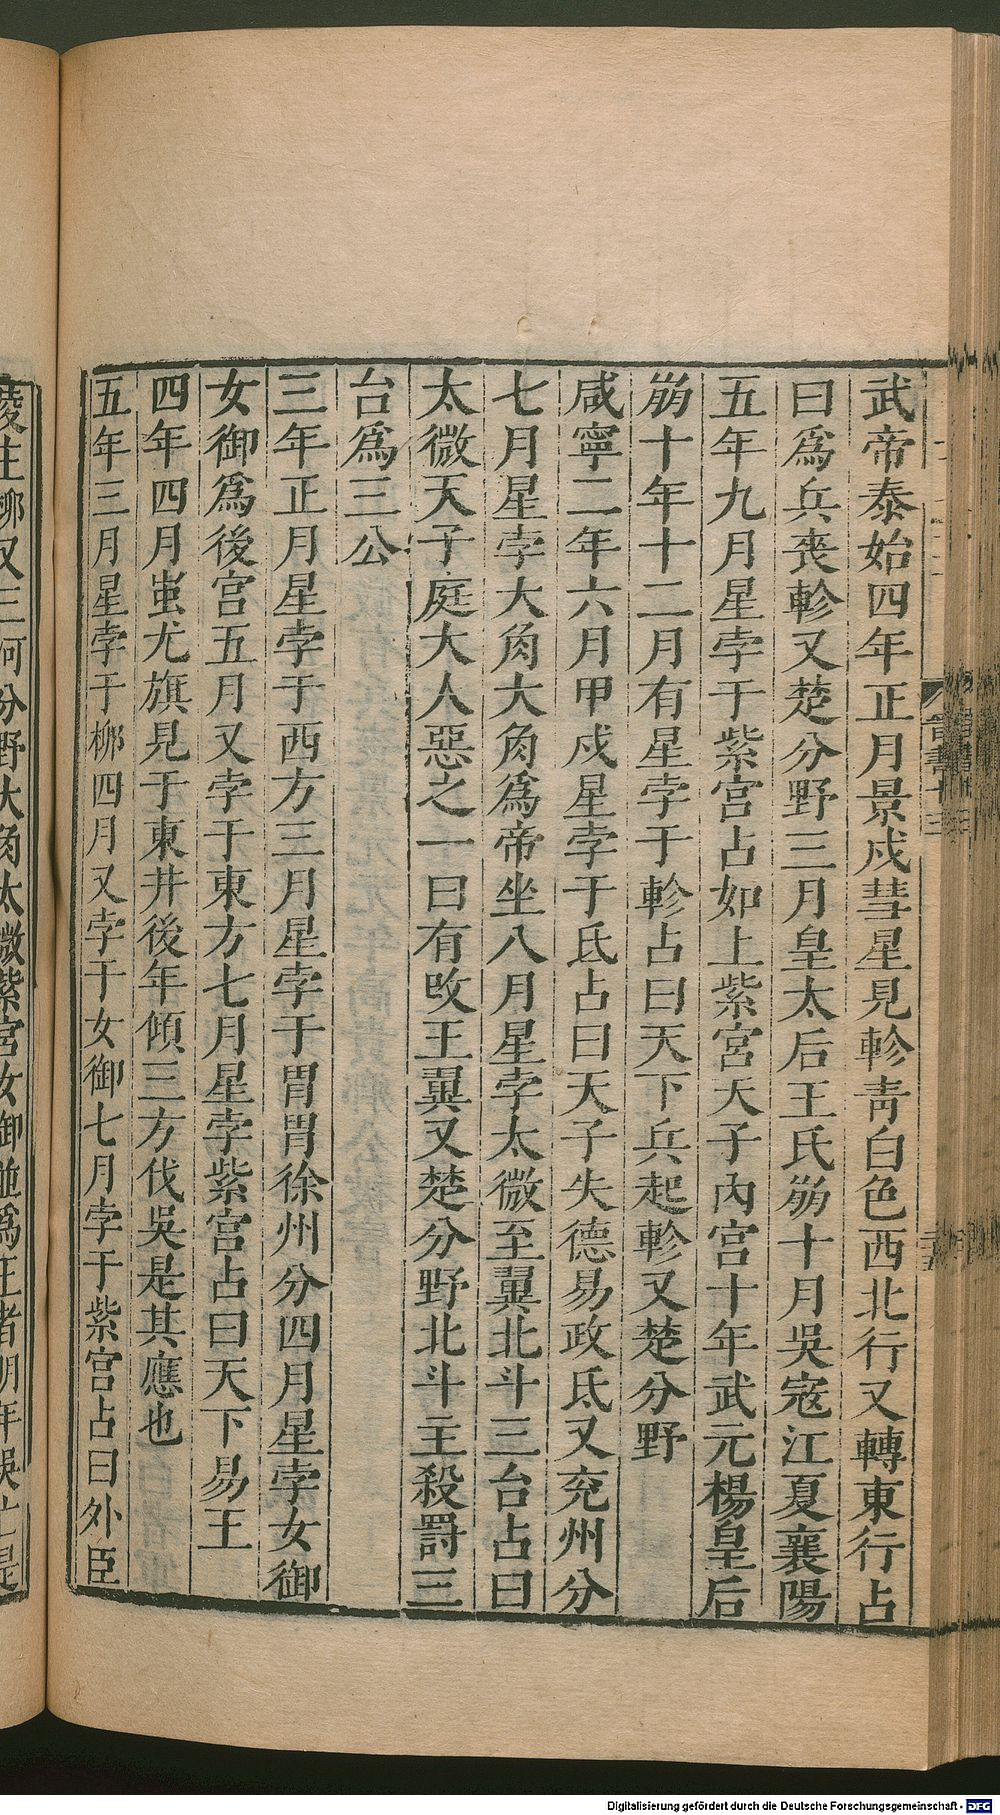 武帝泰始四年正月景戍彗星見軫靑白色西北行又轉東行占
曰爲兵喪軫又楚分野三月皇太后王氏崩十月吳寇江夏襄陽
五年九月星孛于紫宮占如上紫宮天子內宮十年武元楊皇后
崩十年十二月有星孛于軫占曰天下兵起軫又楚分野
咸寧二年六月甲戍星孛于氐占曰天子失德易政氐又兖州分
七月星孛大角大角爲帝坐八月星孛太微至翼北斗三台占曰
太微天子庭大人惡之一曰有攺王翼又楚分野北斗主殺罰三
台爲三公
三年正月星孛于西方三月星孛于胃胃徐州分四月星孛女御
女御爲後宮五月又孛于東方七月星孛紫宮占曰天下易王
四年四月蚩尤旗見于東井後年傾三方伐吳是其應也
五年三月星孛于栁四月又孛于女御七月孛于紫宮占曰外臣
陵主栁又三河分野大角太微紫宮女御並爲王者明年吳亡是
晉書十三
Digitalisierung gefördert durch die Deutsche Forschungsgemeinschaft - DFG